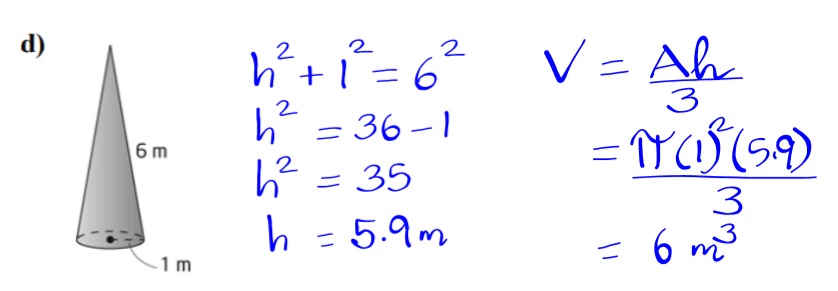 d)
6 m
1 m
h² + 1² = 6²
h² = 36 - 1
h² = 35
h = 5.9 m
V = Ah/3
= π(1)²(5.9)/3
= 6 m³